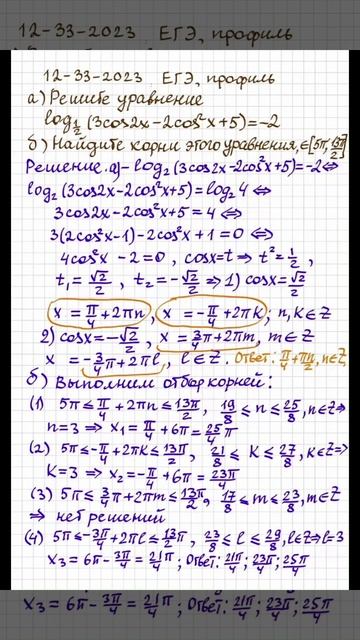 12-33-2023 ЕГЭ, профиль
12-33-2023 ЕГЭ, профиль
а) Решите уравнение
log_{1/2}(3cos2x-2cos²x+5)=-2
б) Найдите корни этого уравнения, ∈[5π, 13π/2]
Решение. а) -log₂(3cos2x-2cos²x+5)=-2⇔
log₂(3cos2x-2cos²x+5)=log₂4⇔
3cos2x-2cos²x+5=4⇔
3(2cos²x-1)-2cos²x+1=0⇔
4cos²x-2=0, cosx=t⇒t²=1/2,
t₁=√2/2, t₂=-√2/2⇒1) cosx=√2/2
x=π/4+2πn, x=-π/4+2πk; n,k∈Z
2) cosx=-√2/2, x=3/4π+2πm, m∈Z
x=-3/4π+2πl, l∈Z. Ответ: π/4+πn/2, n∈Z
б) Выполним отбор корней:
(1) 5π≤π/4+2πn≤13π/2, 19/8≤n≤25/8, n∈Z⇒
n=3⇒x₁=π/4+6π=25/4π
(2) 5π≤-π/4+2πk≤13π/2, 21/8≤k≤27/8, k∈Z⇒
k=3⇒x₂=-π/4+6π=23π/4
(3) 5π≤3/4π+2πm≤13π/2, 17/8≤m≤23/8, m∈Z
⇒ нет решений
(4) 5π≤-3π/4+2πl≤13π/2, 23/8≤l≤29/8, l∈Z⇒l=3
x₃=6π-3π/4=21π/4; Ответ: 21π/4; 23π/4; 25π/4
x₃=6π-3π/4=21π/4; Ответ: 21π/4; 23π/4; 25π/4